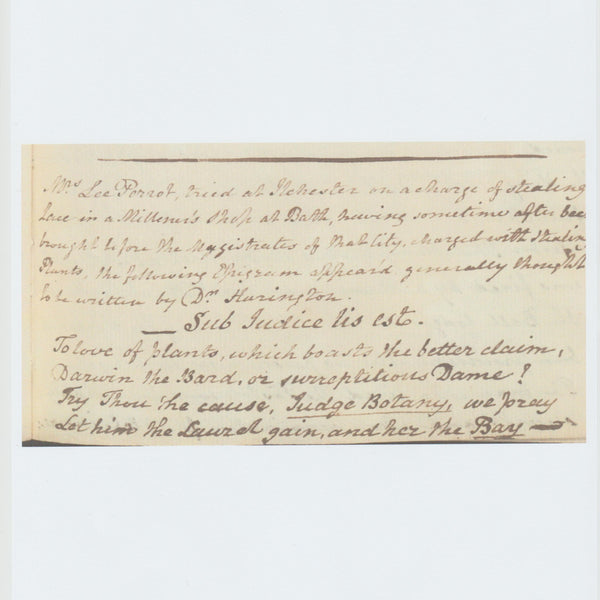 Mrs Lee Perrot, tried at Ilchester on a charge of stealing
Lace in a Milleners Shop at Bath, having sometime after bee
brought before the Magistrates of that City, charged with stealin
Plants, the following Epigram appear'd generally thought
to be written by Dr. Harington.
Sub Iudice lis est.
To love of plants, which boasts the better claim,
Darwin the Bard, or surreptitious Dame?
Try Thou the cause, Judge Botany, we pray
Let him the Laurel gain, and her the Bay —